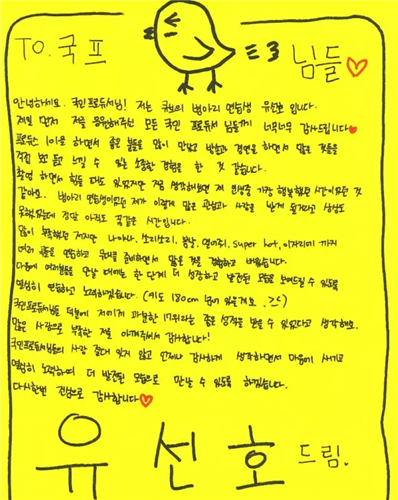 TO. 국프 님들♥
안녕하세요. 국민 프로듀서님! 저는 큐브의 병아리 연습생 유선호 입니다.
제일 먼저 저를 응원해주신 모든 국민 프로듀서 님들께 너무너무 감사드립니다♥
프로듀스 101을 하면서 좋은 분들을 많이 만났고 방송과 경연을 하면서 많은 것들을
직접 보고 듣고 느낄 수 있는 소중한 경험을 한 것 같습니다.
촬영 하면서 힘들 때도 있었지만 지금 생각해보면 제 인생중 가장 행복했던 시간이었던 것
같아요. 병아리 연습생이었던 제가 이렇게 많은 관심과 사랑을 받게 될거라고 상상도
못했었는데 정말 아직도 꿈같은 시간입니다.
많이 부족했던 저지만 나야나, 쏘리쏘리, 봄날, 열어줘, super hot, 이자리에 까지
여러 곡들을 연습하고 무대를 준비하면서 많은 것을 경험하고 배웠습니다.
다음에 여러분들을 만날 때에는 한 단계 더 성장하고 발전된 모습을 보여드릴 수 있도록
열심히 연습하고 노력하겠습니다. (키도 180cm 넘어 있을게요. >.<)
국민프로듀서님들 덕분에 저에게 과분한 17위라는 좋은 성적을 받을 수 있었다고 생각해요.
많은 사랑으로 부족한 저를 아껴주셔서 감사합니다!
국민프로듀서님들의 사랑 절대 잊지 않고 언제나 감사하게 생각하면서 마음에 새기고
열심히 노력하여 더 발전된 모습으로 만날 수 있도록 하겠습니다.
다시한번 진심으로 감사합니다♥
유선호 드림.